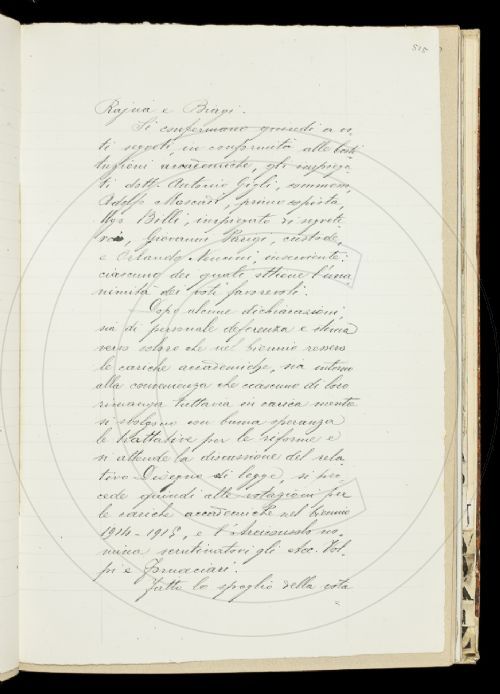 515
Rajna e Biagi.
Si confermano quindi a vo-
ti segreti, in conformità alle Costi-
tuzioni accademiche, gli impiega-
ti dott. Antonio Gigli, commesso,
Adolfo Moscini, primo copista,
Ugo Billi, impiegato di segrete-
ria, Giovanni Parigi, custode,
e Orlando Nuncini, inserviente:
ciascuno dei quali ottiene l'una-
nimità dei voti favorevoli.
Dopo alcune dichiarazioni,
sia di personale deferenza e stima
verso coloro che nel biennio ressero
le cariche accademiche, sia intorno
alla convenienza che ciascuno di loro
rimanga tuttavia in carica mentre
si svolgono con buona speranza
le trattative per le riforme e
si attende la discussione del rela-
tivo Disegno di legge, si pro-
cede quindi alle votazioni per
le cariche accademiche nel biennio
1914-1915, e l'Arciconsolo no-
mina scrutinatori gli Acc. Vol-
pi e
Fatto lo spoglio della vota-